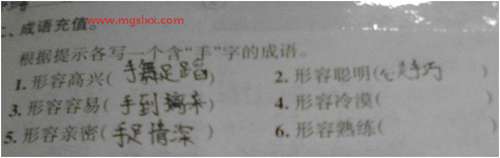 www.mgshxx.com
二、成语充值。
根据提示各写一个含“手”字的成语。
1.形容高兴(手舞足蹈) 2.形容聪明(心灵手巧)
3.形容容易(手到擒来) 4.形容冷漠( )
5.形容亲密(手足情深) 6.形容熟练( )